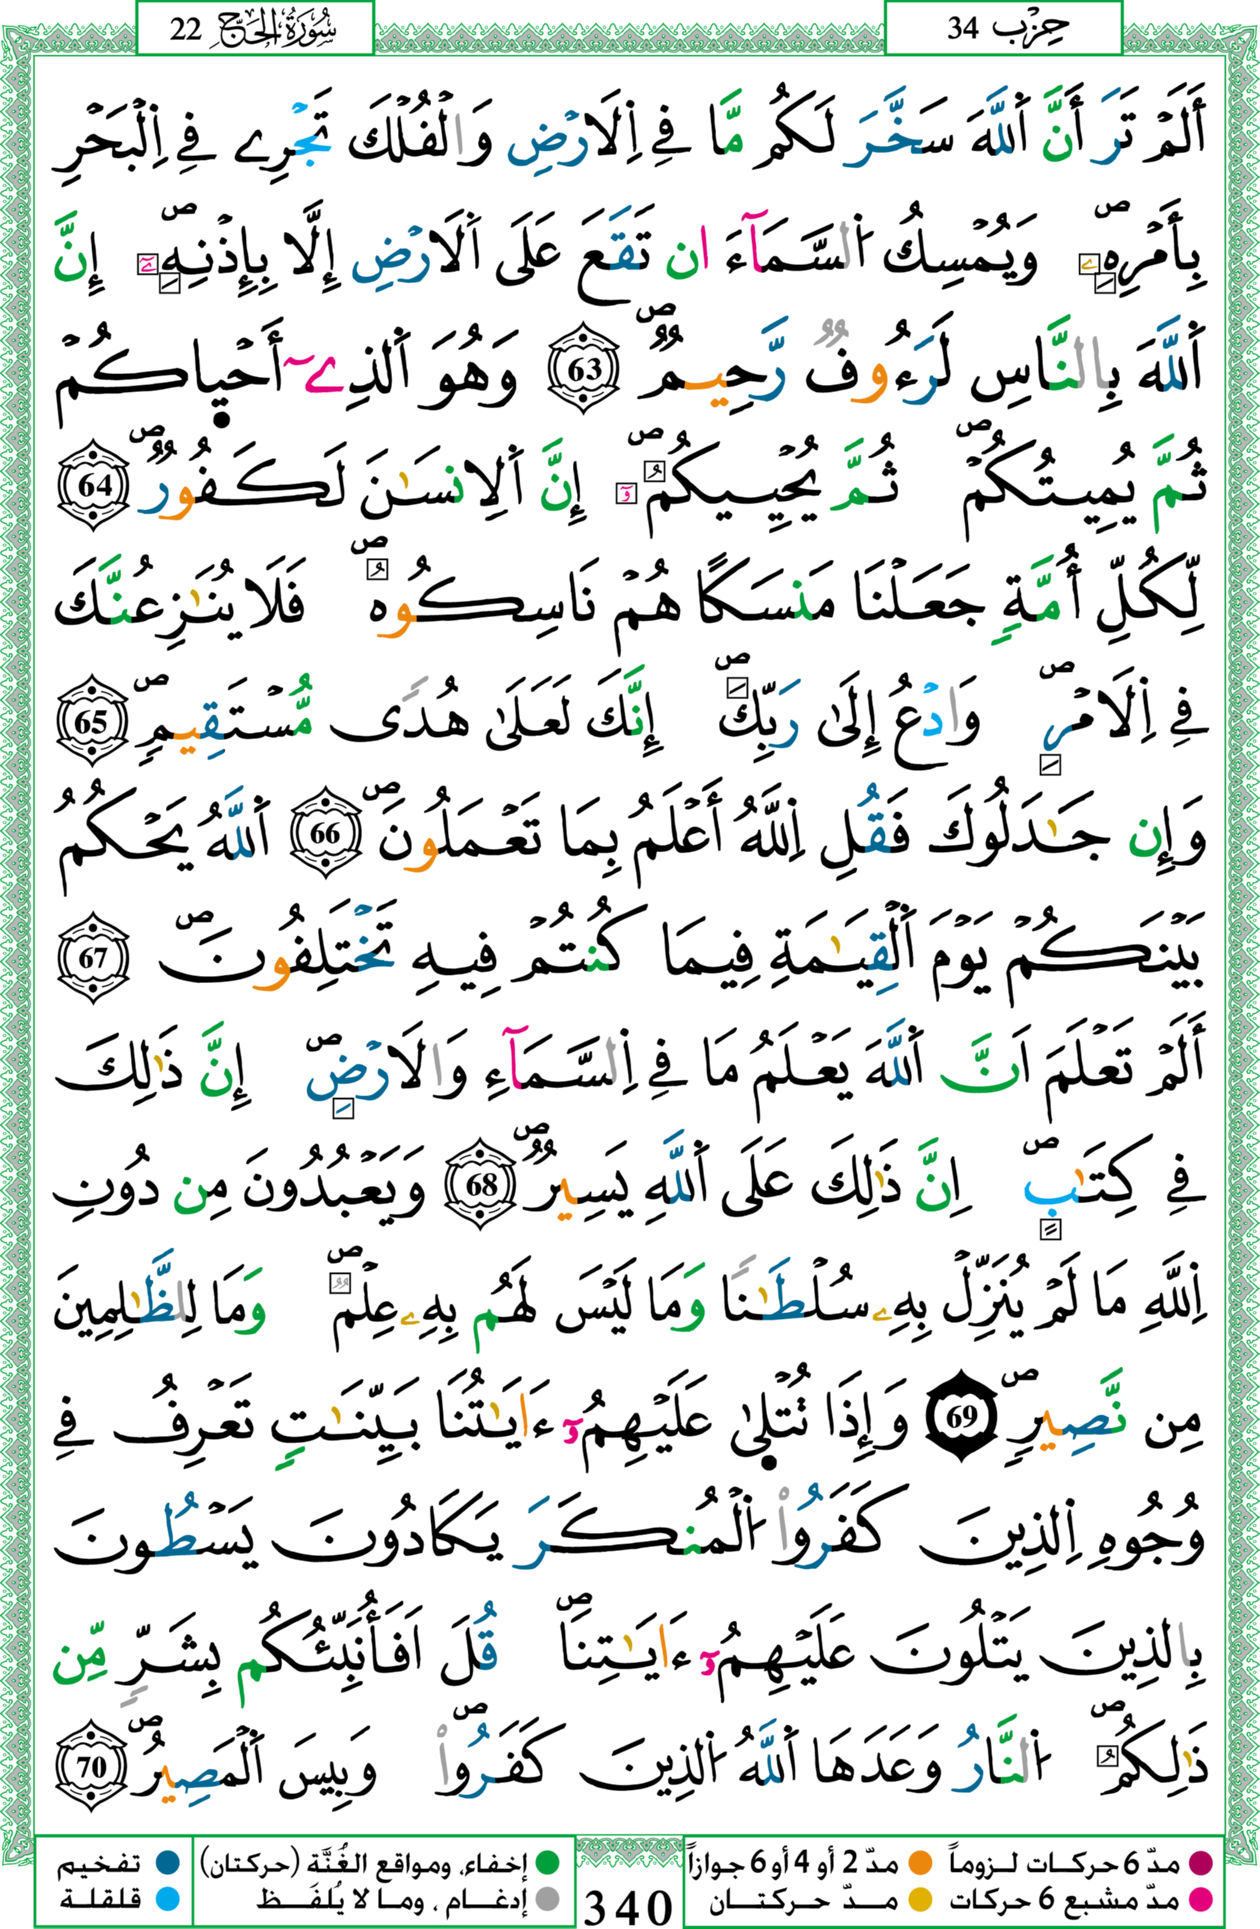 سُورَةُ الحَجِّ 22
حِزْب 34
أَلَمْ تَرَ أَنَّ اَ۬للَّهَ سَخَّرَ لَكُم مَّا فِے اِ۬لَارْضِ وَالْفُلْكَ تَجْرِے فِے اِ۬لْبَحْرِ
بِأَمْرِهِۦ وَيُمْسِكُ اُ۬لسَّمَآءَ ان تَقَعَ عَلَى اَ۬لَارْضِ إِلَّا بِإِذْنِهِۦٓ إِنَّ
اَ۬للَّهَ بِالنَّاسِ لَرَءُوفٌ رَّحِيمٌ 63 وَهُوَ اَ۬لذِےٓ أَحْي۪اكُمْ
ثُمَّ يُمِيتُكُمْ ثُمَّ يُحْيِيكُمُۥٓ إِنَّ اَ۬لِانسَٰنَ لَكَفُورٌ 64
لِّكُلِّ أُمَّةٍ جَعَلْنَا مَنسَكًا هُمْ نَاسِكُوهُ فَلَا يُنَٰزِعُنَّكَ
فِے اِ۬لَامْرِ وَادْعُ إِلَىٰ رَبِّكَ إِنَّكَ لَعَلَىٰ هُدًى مُّسْتَقِيمٍ 65
وَإِن جَٰدَلُوكَ فَقُلِ اِ۬للَّهُ أَعْلَمُ بِمَا تَعْمَلُونَ 66 اَ۬للَّهُ يَحْكُمُ
بَيْنَكُمْ يَوْمَ اَ۬لْقِيَٰمَةِ فِيمَا كُنتُمْ فِيهِ تَخْتَلِفُونَ 67
أَلَمْ تَعْلَمَ اَنَّ اَ۬للَّهَ يَعْلَمُ مَا فِے اِ۬لسَّمَآءِ وَالَارْضِ إِنَّ ذَٰلِكَ
فِے كِتَٰبٍ اِنَّ ذَٰلِكَ عَلَى اَ۬للَّهِ يَسِيرٌ 68 وَيَعْبُدُونَ مِن دُونِ
اِ۬للَّهِ مَا لَمْ يُنَزِّلْ بِهِۦ سُلْطَٰنًا وَمَا لَيْسَ لَهُم بِهِۦ عِلْمٌ وَمَا لِلظَّٰلِمِينَ
مِن نَّصِيرٍ 69 وَإِذَا تُتْل۪ىٰ عَلَيْهِمُۥٓ ءَايَٰتُنَا بَيِّنَٰتٍ تَعْرِفُ فِے
وُجُوهِ اِ۬لذِينَ كَفَرُواْ اُ۬لْمُنكَرَ يَكَادُونَ يَسْطُونَ
بِالذِينَ يَتْلُونَ عَلَيْهِمُۥٓ ءَايَٰتِنَا قُلَ اَفَأُنَبِّئُكُم بِشَرٍّ مِّن
ذَٰلِكُمُ اُ۬لنَّارُ وَعَدَهَا اَ۬للَّهُ اُ۬لذِينَ كَفَرُواْ وَبِيسَ اَ۬لْمَصِيرُ 70
مدّ 6 حركات لـزوماً
مدّ 2 أو 4 أو 6 جوازاً
إخفاء، ومواقع الغُنَّة (حركتان)
تفخيم
مدّ مشبع 6 حركات
مـدّ حـركتـان
340
إدغـام ، ومـا لا يُلفَـظ
قلقلة